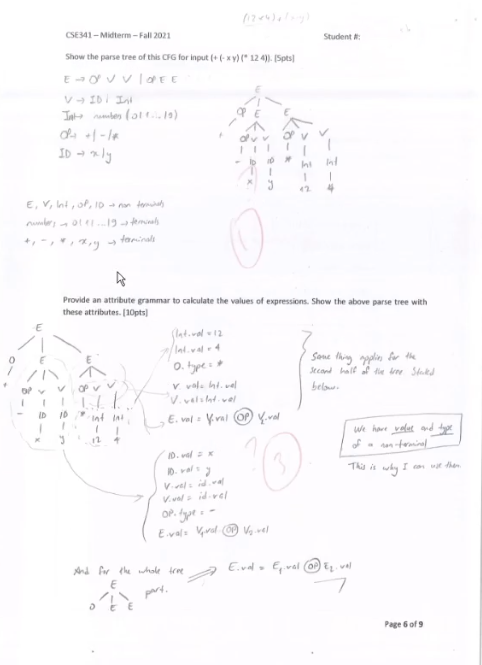 (12*4)+(-xy)
CSE341 – Midterm – Fall 2021 Student #:
Show the parse tree of this CFG for input (+ (- x y) (* 12 4)). [5pts]
E → OP V V | OP E E
V → ID | Int
Int → numbers (0|1|...|9)
OP → +|-|*
ID → x|y
E
OP E E
+ OP V V OP V V
- ID ID * Int Int
x y 12 4
1
E, V, Int, OP, ID → non terminals
numbers → 0|1|...|9 → terminals
+, -, *, x, y → terminals
Provide an attribute grammar to calculate the values of expressions. Show the above parse tree with
these attributes. [10pts]
E
O E E
+ OP V V OP V V
- ID ID * Int Int
x y 12 4
Int.val = 12
Int.val = 4
O.type = *
V.val = Int.val
V.val = Int.val
E.val = V1.val OP V2.val
Same thing applies for the
second half of the tree. Stated
below.
We have value and type
of a non-terminal
This is why I can use them
? 3
ID.val = x
ID.val = y
V.val = id.val
V.val = id.val
OP.type = -
E.val = V1.val OP V2.val
And for the whole tree E.val = E1.val OP E2.val
E
O E E part.
Page 6 of 9